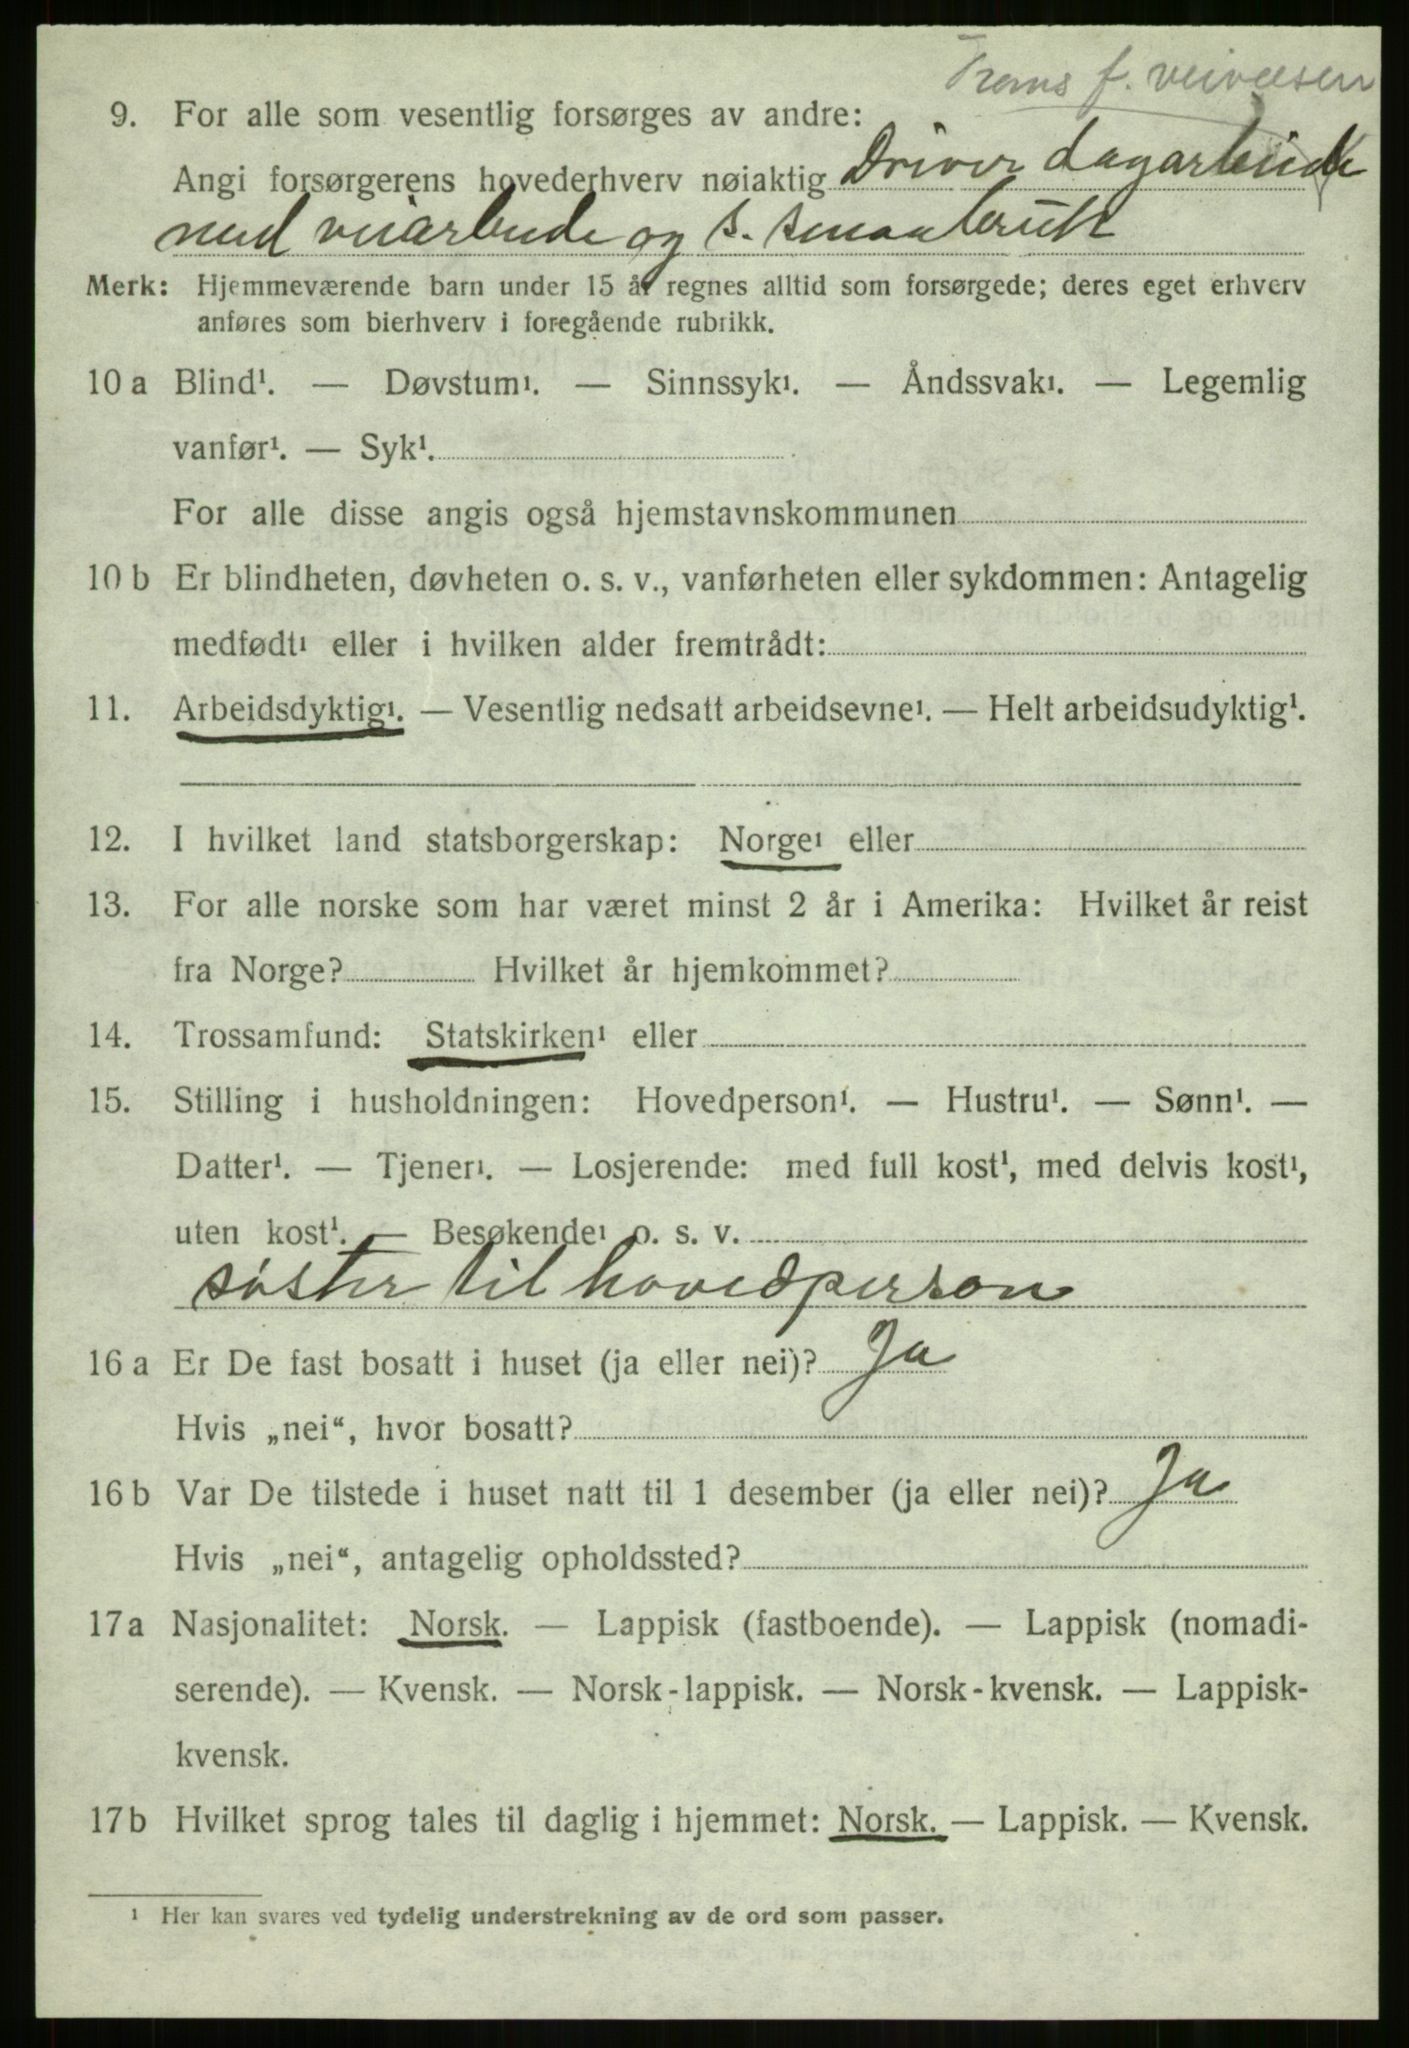 Troms f. veivæsen
9. For alle som vesentlig forsørges av andre:
Angi forsørgerens hovederhverv nøiaktig Driver dagarbeide
med veiarbeide og s. smaabruk
Merk: Hjemmeværende barn under 15 år regnes alltid som forsørgede; deres eget erhverv
anføres som bierhverv i foregående rubrikk.
10 a Blind¹. — Døvstum¹. — Sinnssyk¹. — Åndssvak¹. — Legemlig
vanfør¹. — Syk¹.
For alle disse angis også hjemstavnskommunen
10 b Er blindheten, døvheten o. s. v., vanførheten eller sykdommen: Antagelig
medfødt¹ eller i hvilken alder fremtrådt:
11. Arbeidsdyktig¹. — Vesentlig nedsatt arbeidsevne¹. — Helt arbeidsudyktig¹.
12. I hvilket land statsborgerskap: Norge¹ eller
13. For alle norske som har været minst 2 år i Amerika: Hvilket år reist
fra Norge? Hvilket år hjemkommet?
14. Trossamfund: Statskirken¹ eller
15. Stilling i husholdningen: Hovedperson¹. — Hustru¹. — Sønn¹. —
Datter¹. — Tjener¹. — Losjerende: med full kost¹, med delvis kost¹,
uten kost¹. — Besøkende¹ o. s. v.
søster til hovedperson
16 a Er De fast bosatt i huset (ja eller nei)? Ja
Hvis „nei“, hvor bosatt?
16 b Var De tilstede i huset natt til 1 desember (ja eller nei)? Ja
Hvis „nei“, antagelig opholdssted?
17 a Nasjonalitet: Norsk. — Lappisk (fastboende). — Lappisk (nomadi-
serende). — Kvensk. — Norsk-lappisk. — Norsk-kvensk. — Lappisk-
kvensk.
17 b Hvilket sprog tales til daglig i hjemmet: Norsk. — Lappisk. — Kvensk.
¹ Her kan svares ved tydelig understrekning av de ord som passer.